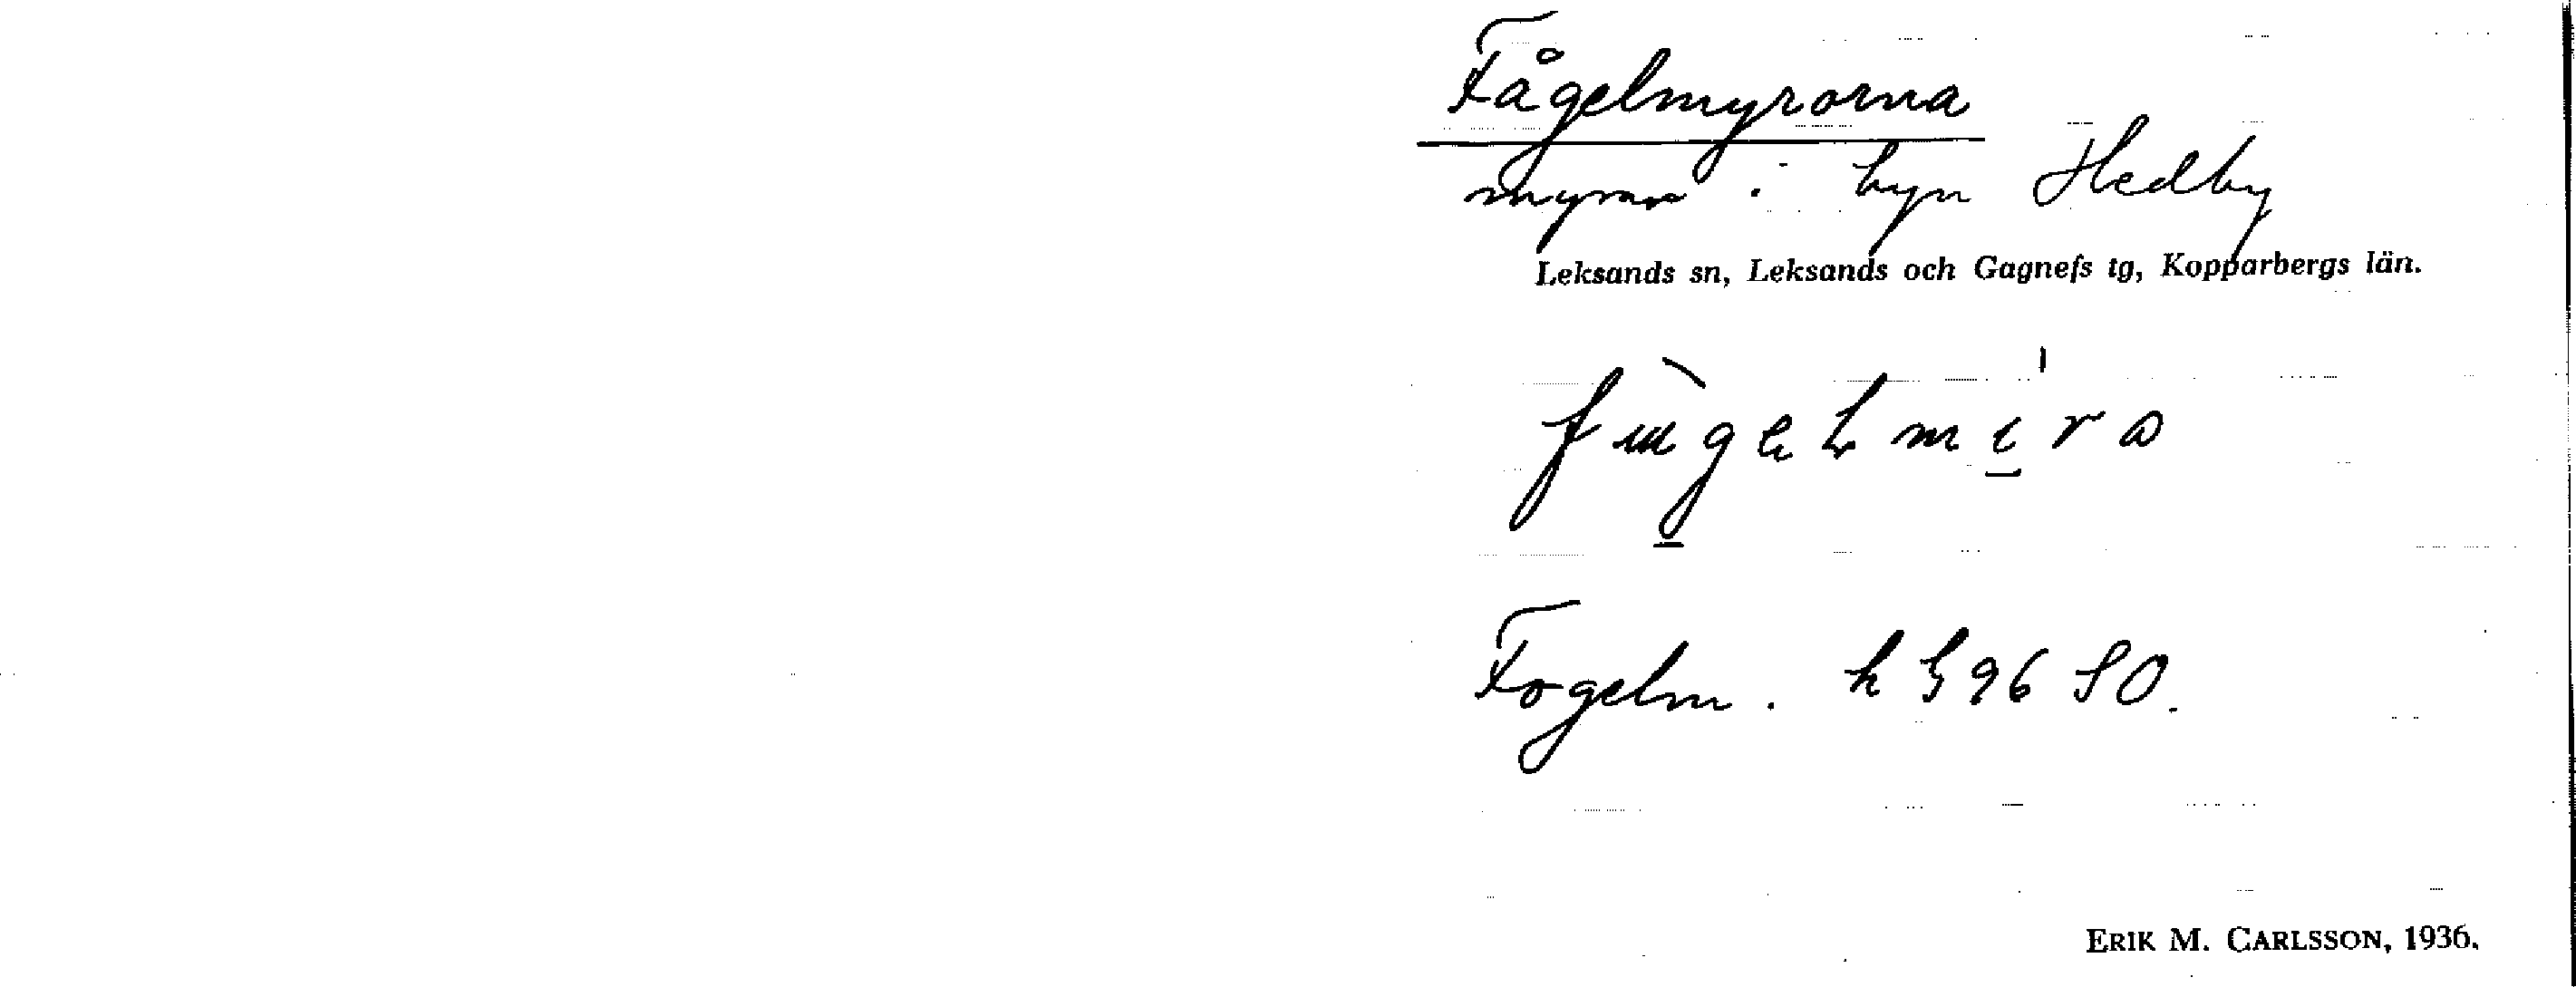 Fågelmyrorna
myrar i byn Hedby
Leksands sn, Leksands och Gagnefs tg, Kopparbergs län.
Fogelm. k 396 SO.
ERIK M. CARLSSON, 1936.